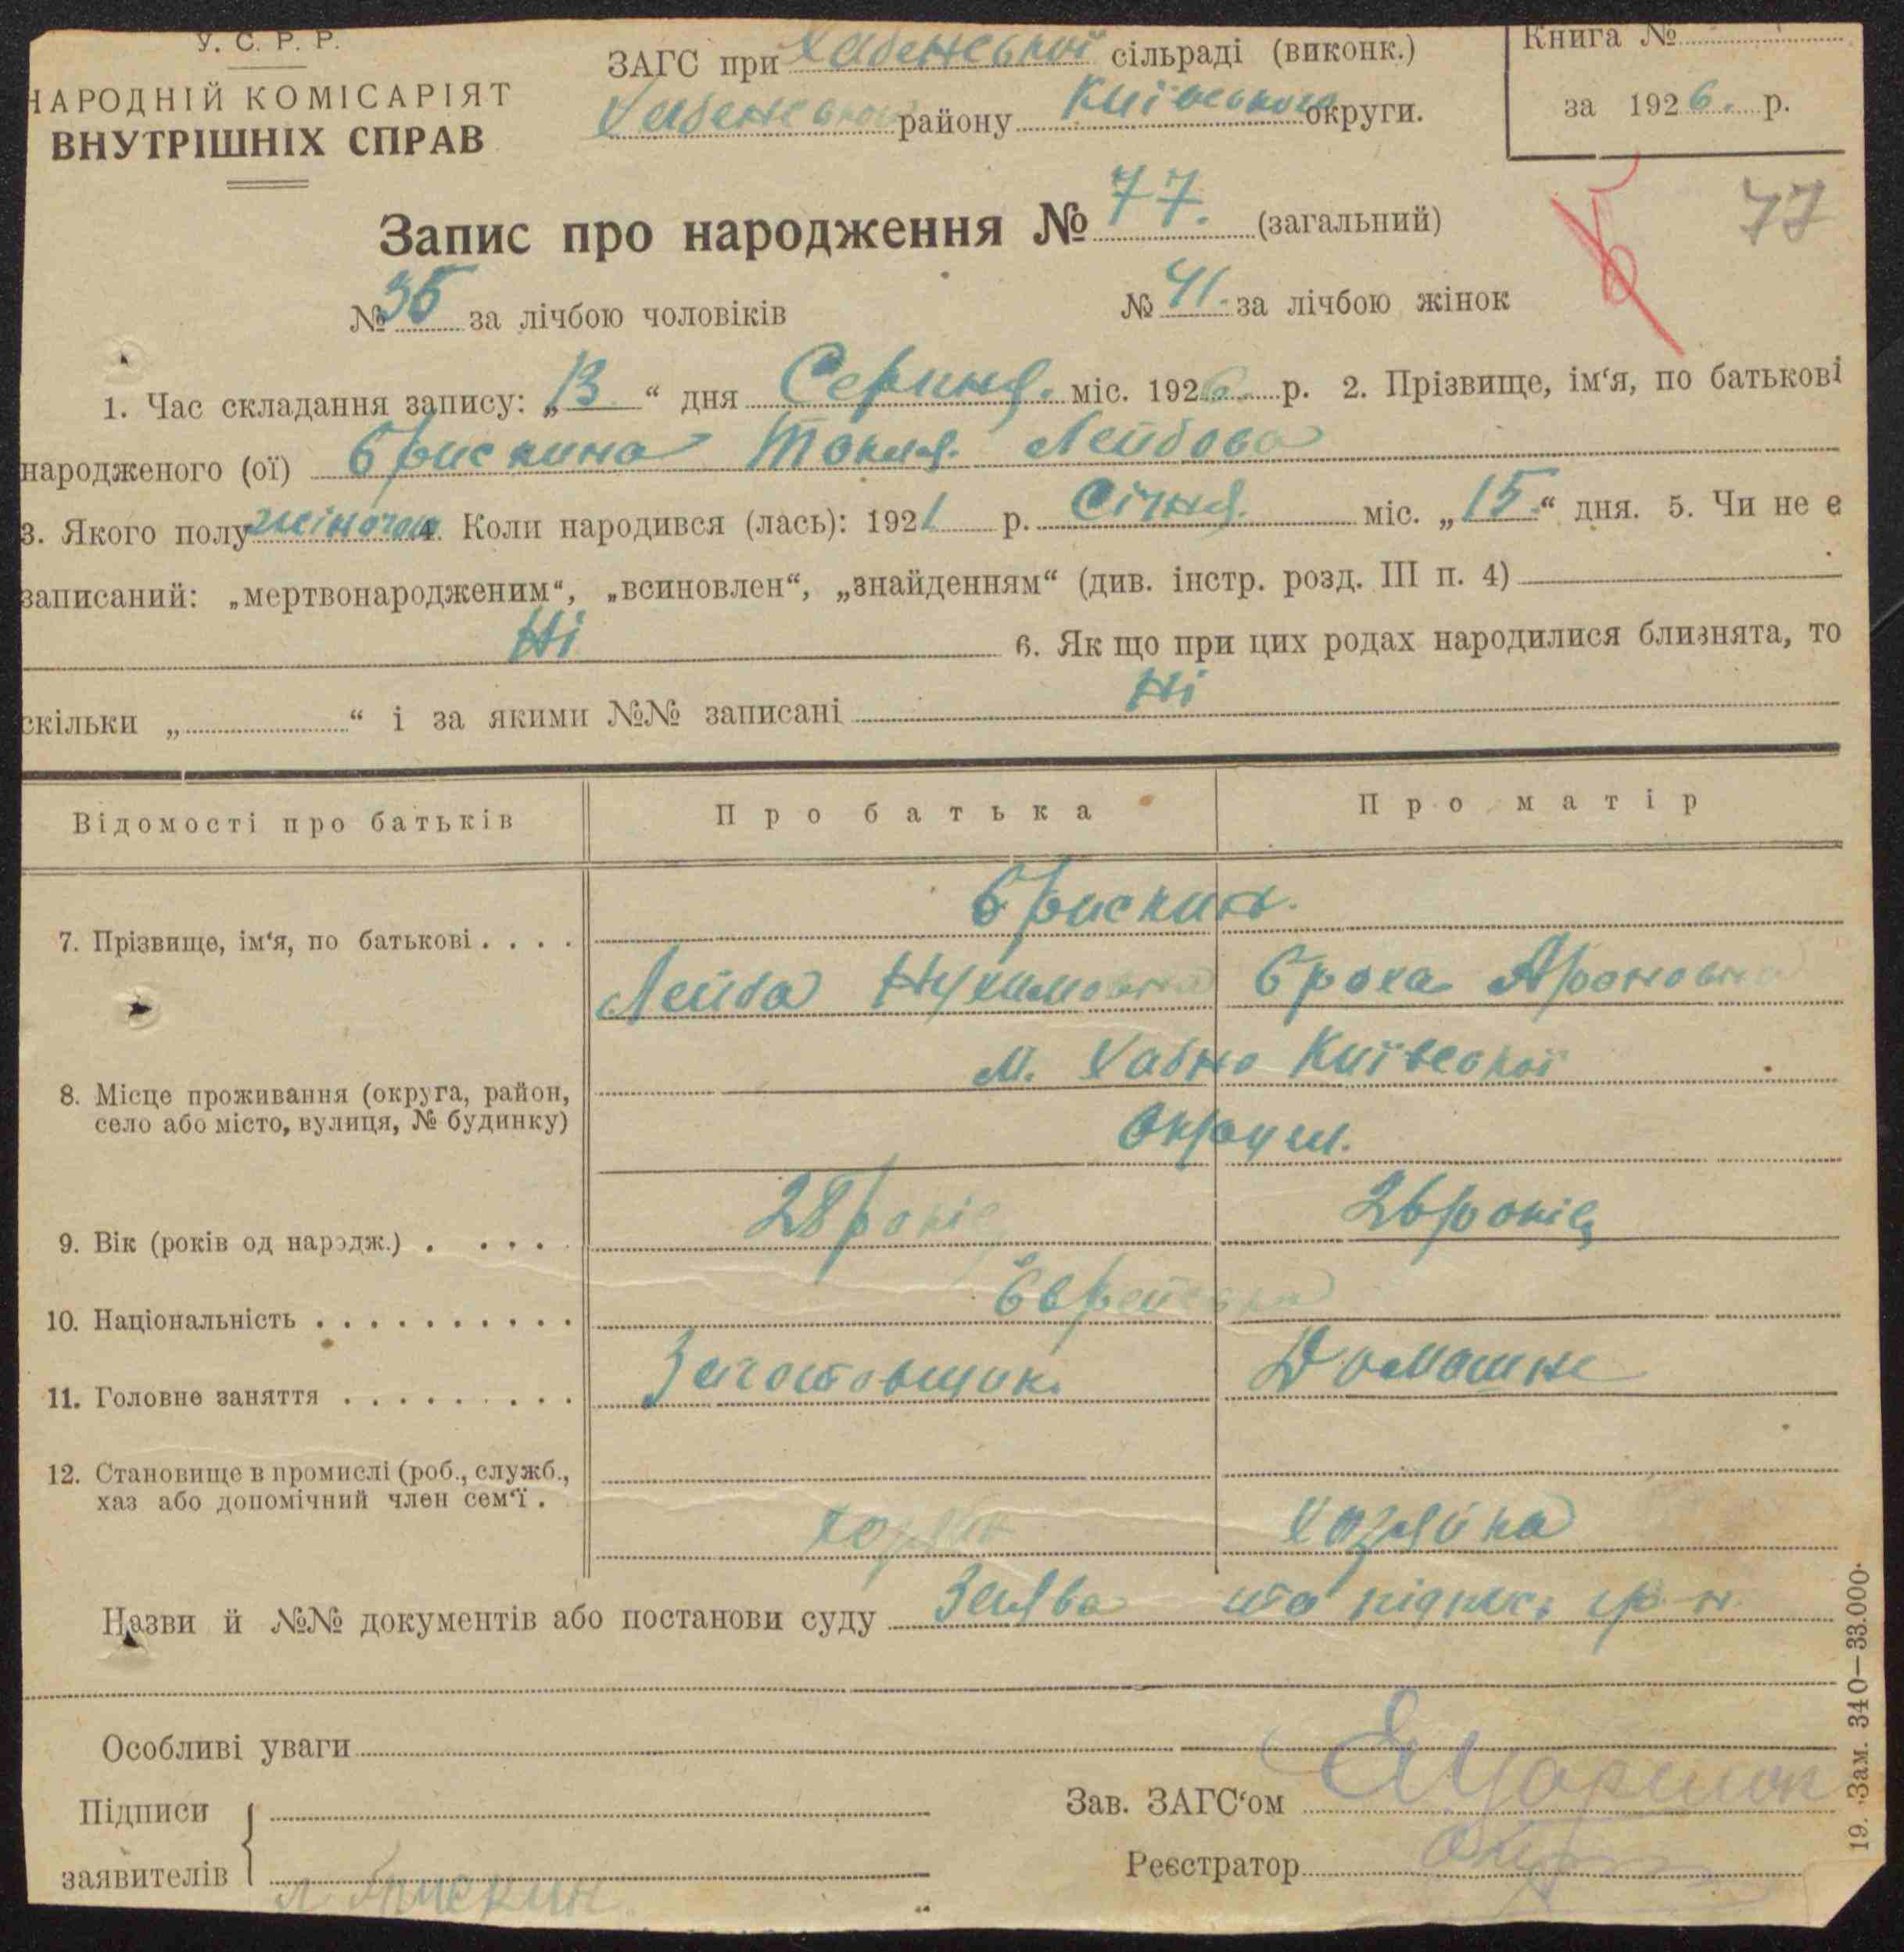 У. С. Р. Р.
НАРОДНІЙ КОМІСАРІЯТ
ВНУТРІШНІХ СПРАВ
ЗАГС при Хабенської сільраді (виконк.)
Хабенського району Київської округи.
Книга №
за 1926. р.
Запис про народження № 77. (загальний)
77
№ 36 за лічбою чоловіків № 41. за лічбою жінок
1. Час складання запису: „13“ дня Серпня. міс. 1926 р. 2. Прізвище, ім‘я, по батькові
народженого (ої) Брискина Лейбова
3. Якого полу жіночого 4. Коли народився (лась): 1921 р. Січня. міс. „15.“ дня. 5. Чи не є
записаний: „мертвонародженим“, „всиновлен“, „знайденням“ (див. інстр. розд. III п. 4)
Ні 6. Як що при цих родах народилися близнята, то
скільки „ “ і за якими №№ записані Ні
Відомості про батьків Про батька Про матір
Брискин.
7. Прізвище, ім‘я, по батькові . . . .
Лейба Нухимовна Броха Ароновна
м. Хабно Київської
8. Місце проживання (округа, район,
село або місто, вулиця, № будинку)
Округи.
9. Вік (років од народж.) . . . . 28 років 26 років
10. Національність . . . . . . . . . . Єврейська
11. Головне заняття . . . . . . . . . Заготовщик. Домашнє
12. Становище в промислі (роб., служб.,
хаз або допомічний член сем‘ї .
Хазяйка
Назви й №№ документів або постанови суду Заява та підпис гр-н
Особливі уваги
Підписи
Зав. ЗАГС‘ом
заявителів Л Брискин
Реєстратор
19. Зам. 340—33.000.